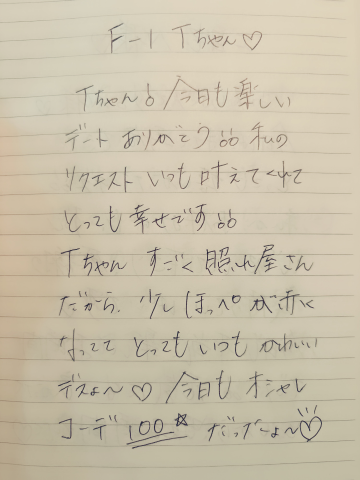 F-1 Tちゃん♡
Tちゃん♂今日も楽しい
デートありがとう♂♂私の
リクエストいつも叶えてくれて
とっても幸せです♂♂
Tちゃん すごく照れ屋さん
だから、少しほっぺが赤く
なってて とっても いつも かわいい
デスよ〜♡ 今日も オシャレ
コーデ 100☆ だったーよ〜♡